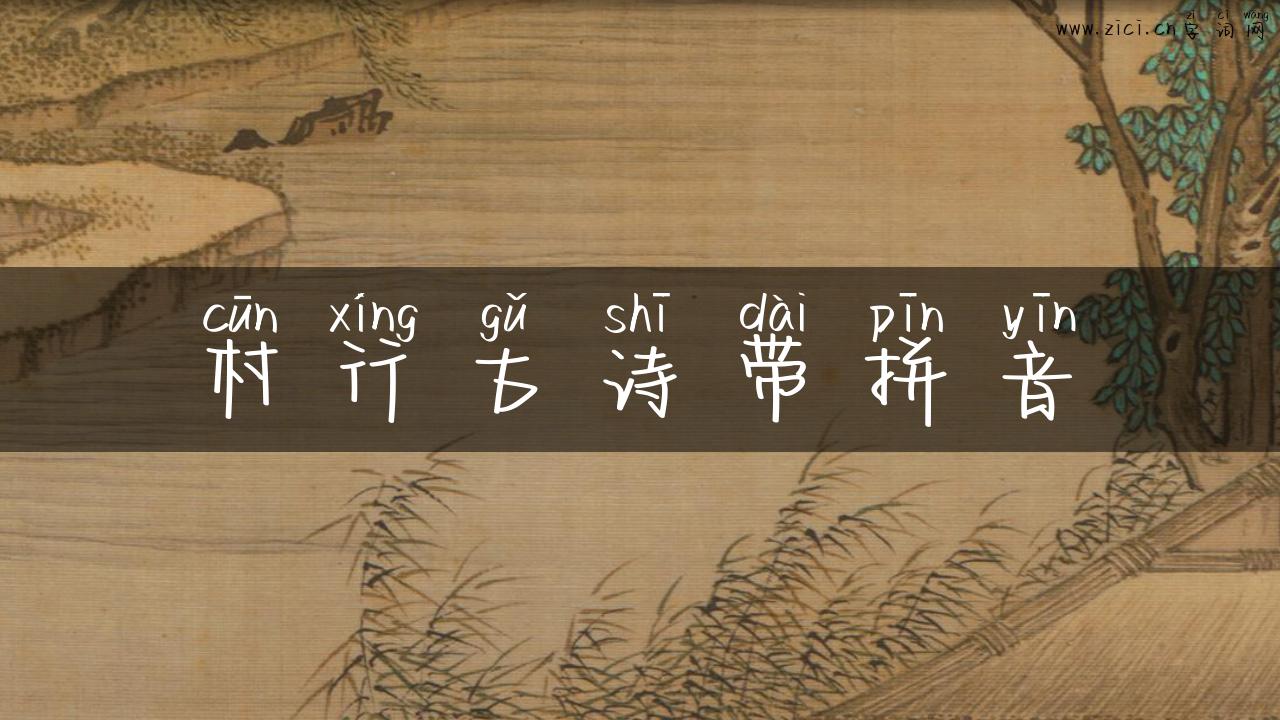 zì cí wǎng
www.zici.cn字词网
cūn xíng gǔ shī dài pīn yīn
村行古诗带拼音